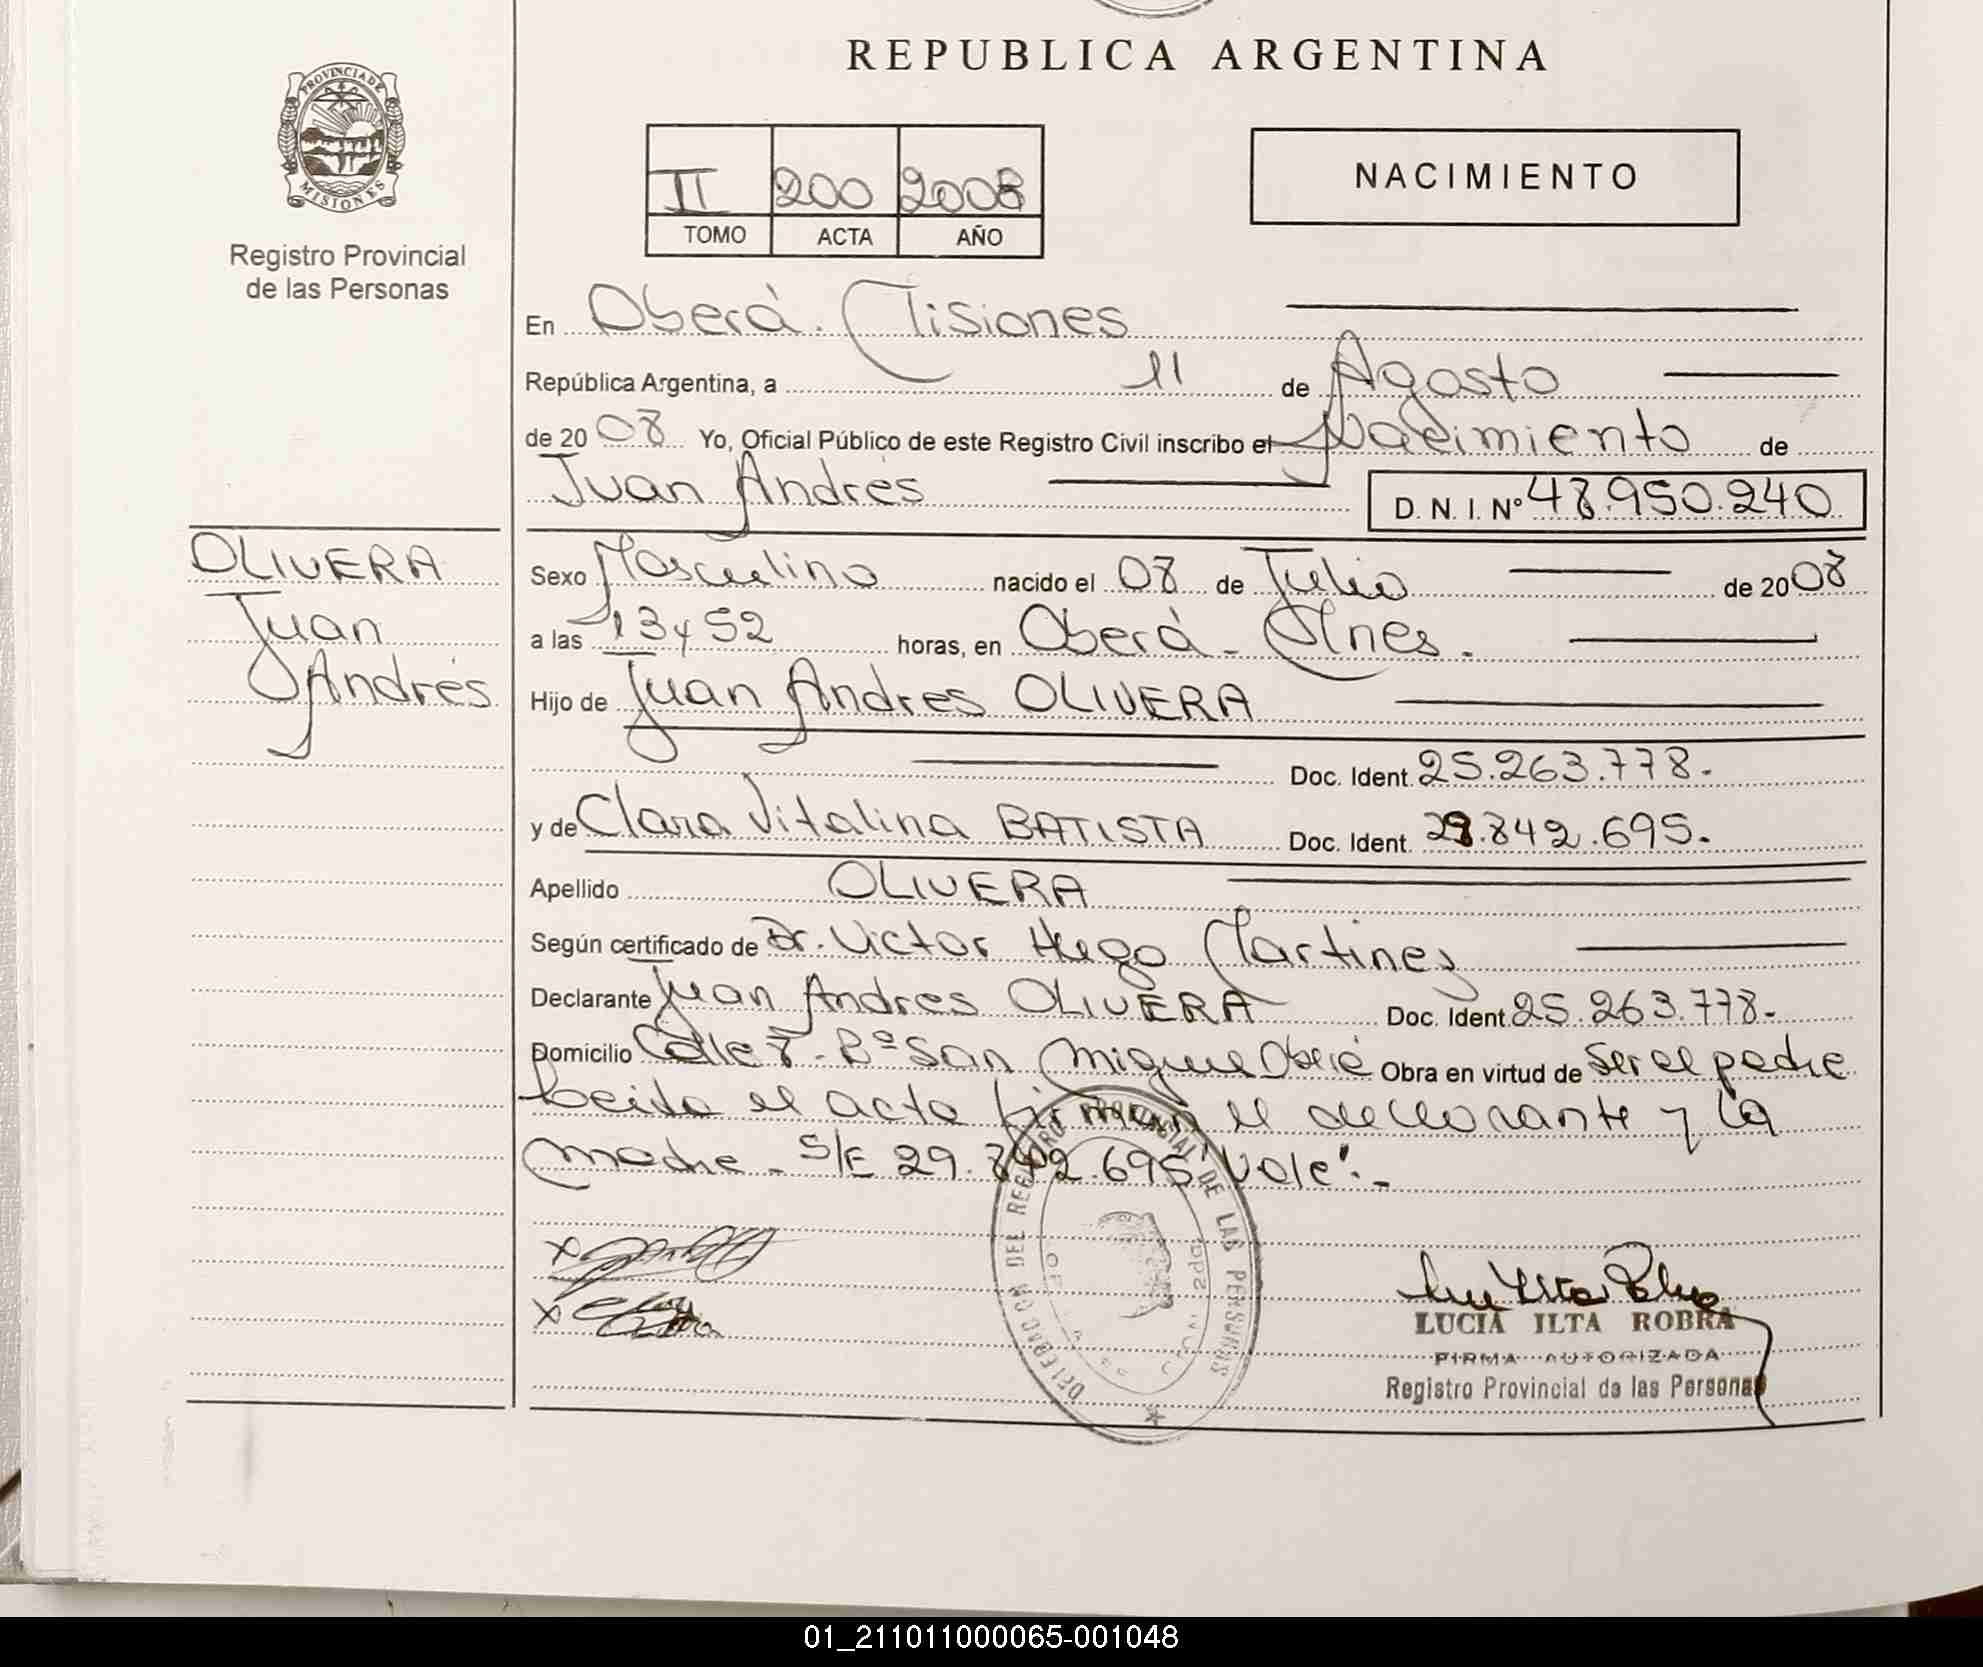 REPUBLICA ARGENTINA
PROVINCIA DE
MISIONES
Registro Provincial
de las Personas
II 200 2008
TOMO ACTA AÑO
NACIMIENTO
En Oberá. Misiones
República Argentina, a 11 de Agosto
de 2008 Yo, Oficial Público de este Registro Civil inscribo el Nacimiento de
Juan Andrés D. N. I. Nº 48.950.240
OLIVERA
Juan
Andrés
Sexo Masculino nacido el 08 de Julio de 2008
a las 13 y 52 horas, en Oberá - Mnes.
Hijo de Juan Andres OLIVERA
Doc. Ident. 25.263.778.-
y de Clara Vitalina BATISTA Doc. Ident. 29.842.695.
Apellido OLIVERA
Según certificado de Dr. Victor Hugo Martinez
Declarante Juan Andres OLIVERA Doc. Ident. 25.263.778.-
Domicilio Calle 8 - Bº San Miguel Oberá Obra en virtud de ser el padre
Leida el acta firman el declarante y la
madre - S/E 29.842.695 "Vale".-
DELEGACION DEL REGISTRO PROVINCIAL DE LAS PERSONAS
LUCIA ILTA ROBRA
FIRMA AUTORIZADA
Registro Provincial de las Personas
01_211011000065-001048